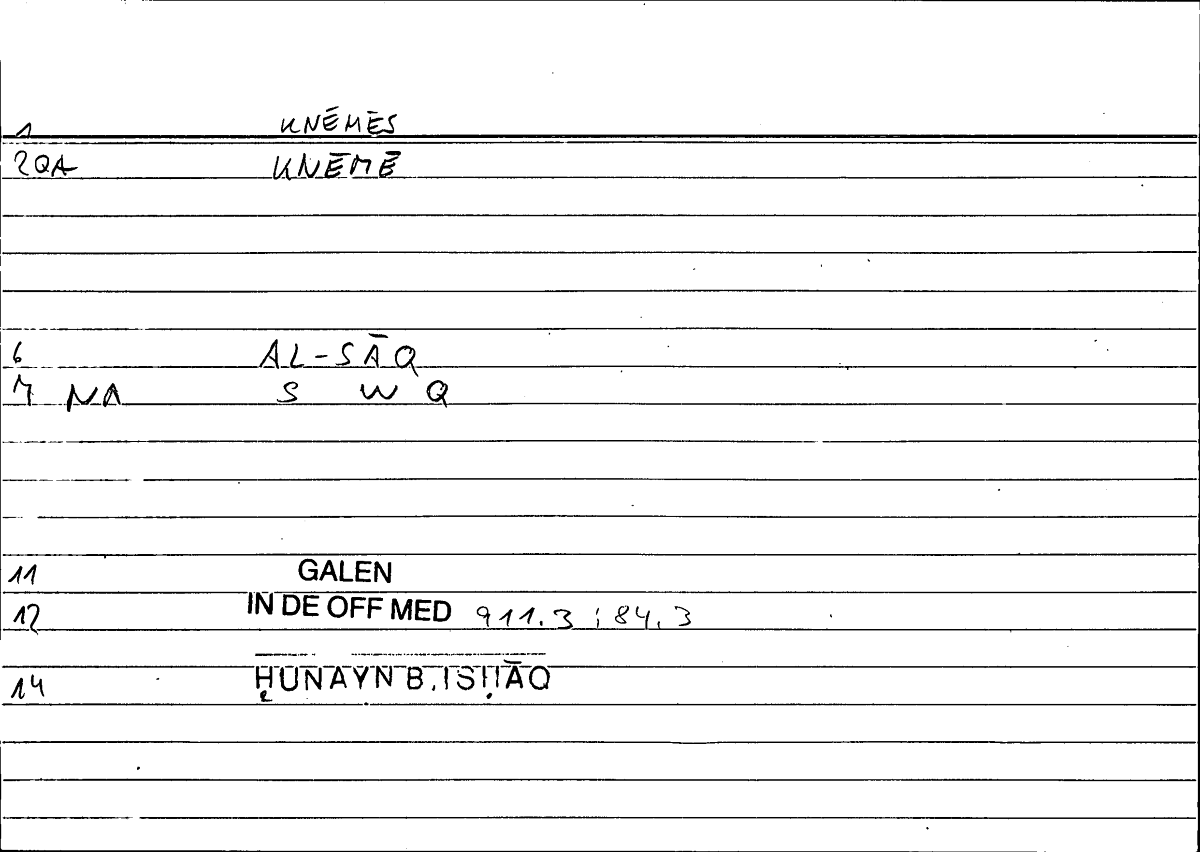 1 KNĒMĒS
2QA KNĒMĒ
6 AL-SĀQ
7 NA S W Q
11 GALEN
12 IN DE OFF MED 911.3 ; 84.3
14 ḤUNAYN B. ISḤĀQ